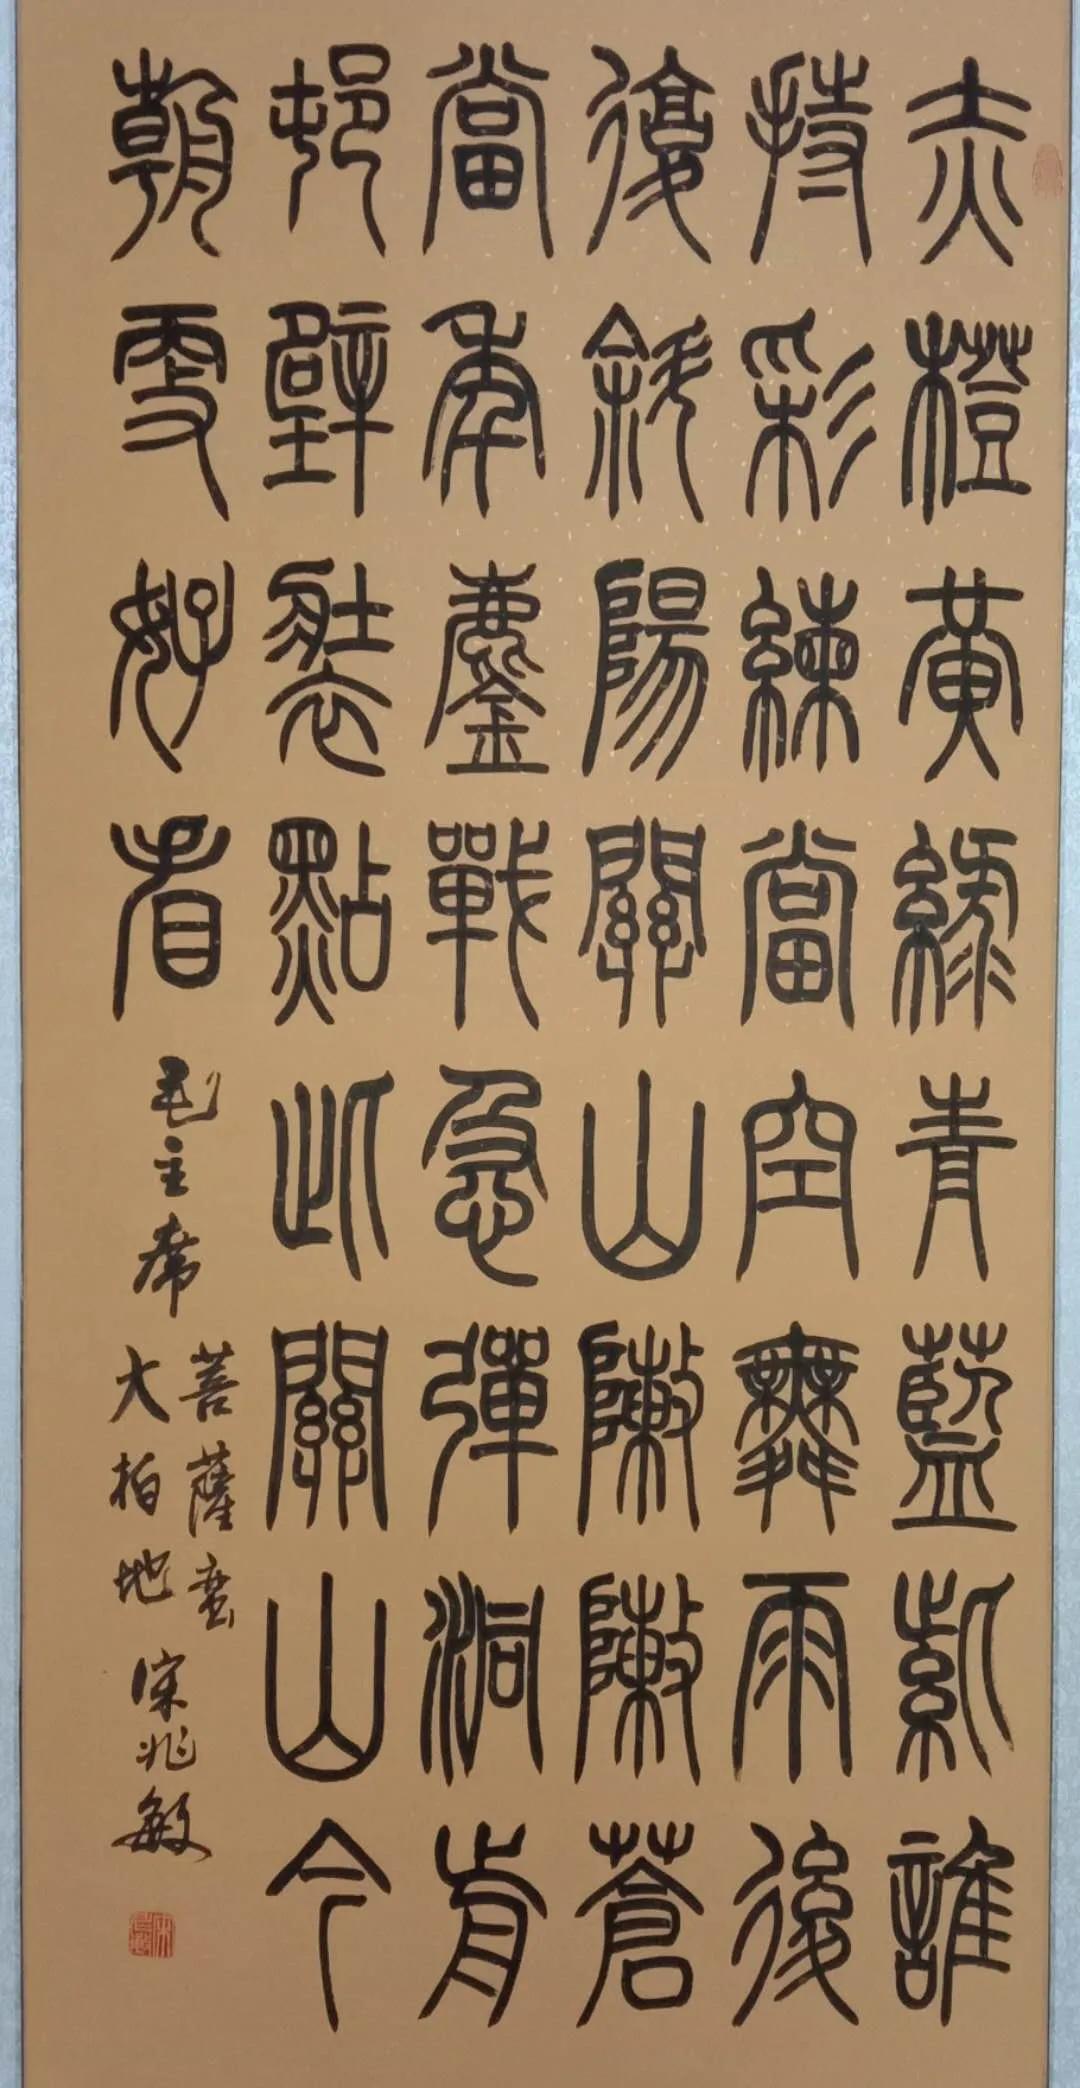 赤橙黃綠青藍紫誰
持彩練當空舞雨後
復斜陽關山陣陣蒼
當年鏖戰急彈洞前
邨壁裝點此關山今
朝更好看
毛主席
菩薩蛮
大柏地
宋兆敏